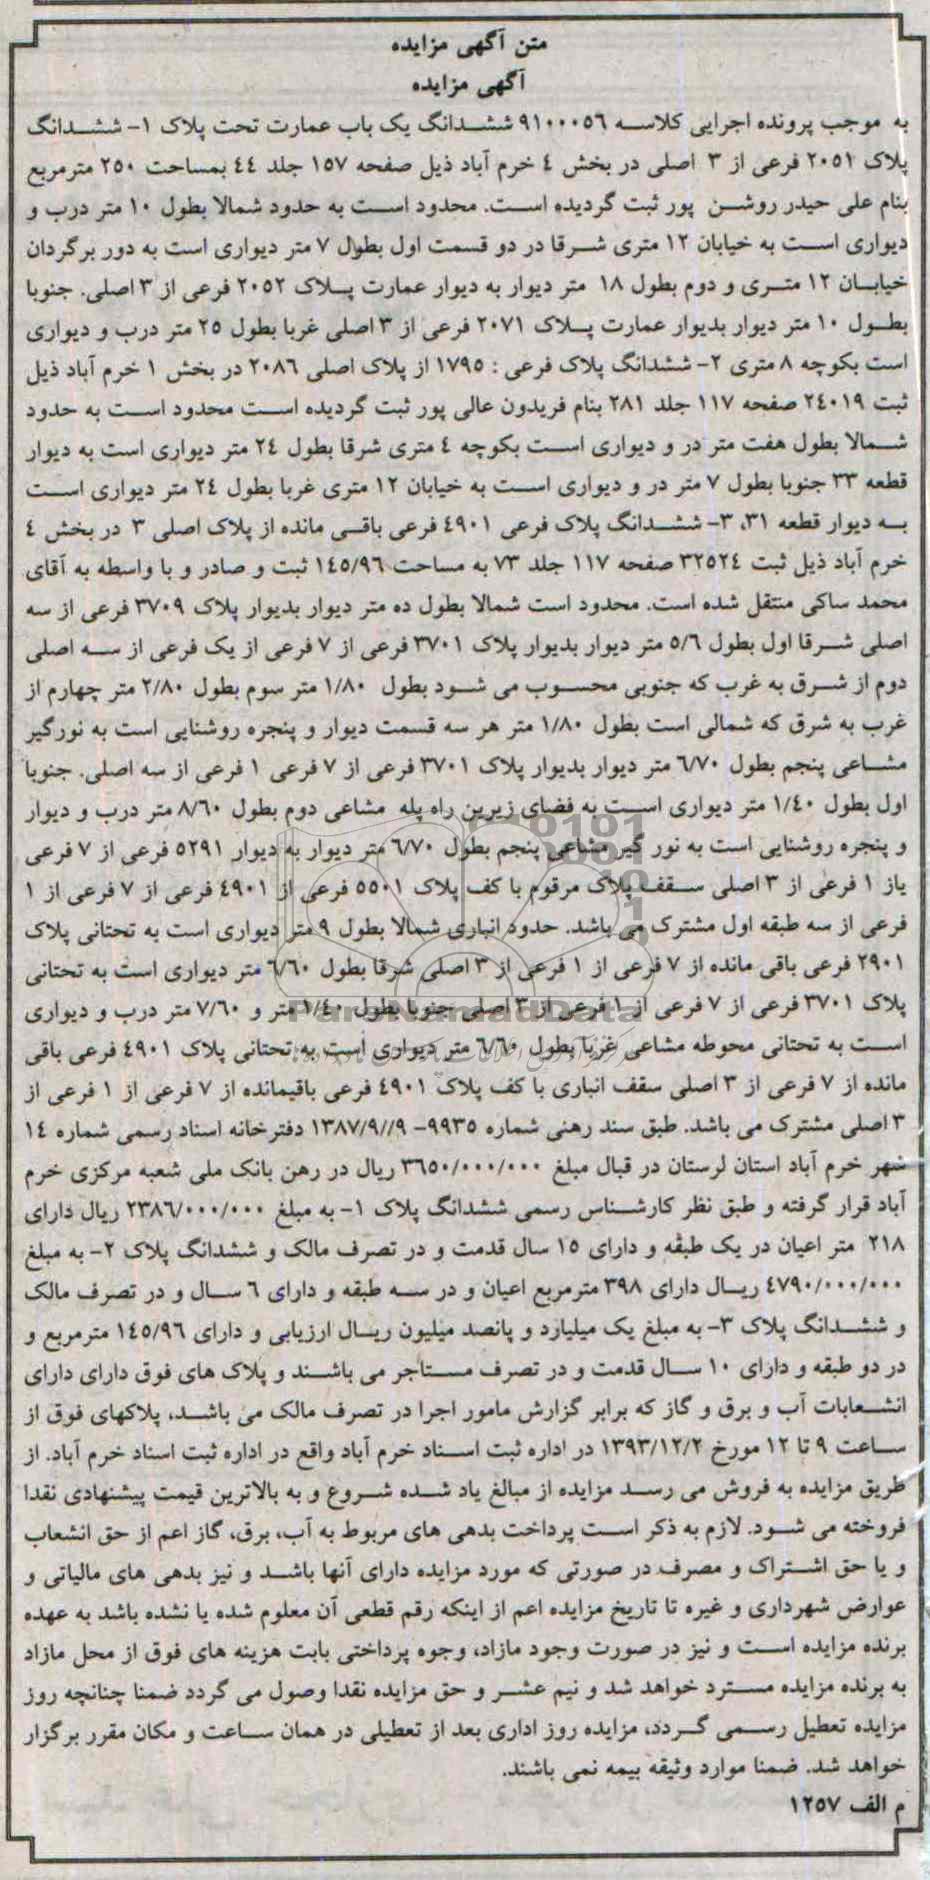 متن آگهی مزایده
آگهی مزایده
به موجب پرونده اجرایی کلاسه ٩١٠٠٠٥٦ ششدانگ یک باب عمارت تحت پلاک ١- ششدانگ
پلاک ٢٠٥١ فرعی از ٣ اصلی در بخش ٤ خرم آباد ذیل صفحه ١٥٧ جلد ٤٤ بمساحت ٢٥٠ مترمربع
بنام علی حیدر روشن پور ثبت گردیده است. محدود است به حدود شمالا بطول ١٠ متر درب و
دیواری است به خیابان ١٢ متری شرقا در دو قسمت اول بطول ٧ متر دیواری است به دور برگردان
خیابان ١٢ متری و دوم بطول ١٨ متر دیوار به دیوار عمارت پلاک ٢٠٥٢ فرعی از ٣ اصلی. جنوبا
بطول ١٠ متر دیوار بدیوار عمارت پلاک ٢٠٧١ فرعی از ٣ اصلی غربا بطول ٢٥ متر درب و دیواری
است بکوچه ٨ متری ٢- ششدانگ پلاک فرعی : ١٧٩٥ از پلاک اصلی ٢٠٨٦ در بخش ١ خرم آباد ذیل
ثبت ٢٤٠١٩ صفحه ١١٧ جلد ٢٨١ بنام فریدون عالی پور ثبت گردیده است محدود است به حدود
شمالا بطول هفت متر در و دیواری است بکوچه ٤ متری شرقا بطول ٢٤ متر دیواری است به دیوار
قطعه ٣٣ جنوبا بطول ٧ متر در و دیواری است به خیابان ١٢ متری غربا بطول ٢٤ متر دیواری است
به دیوار قطعه ٣١، ٣- ششدانگ پلاک فرعی ٤٩٠١ فرعی باقی مانده از پلاک اصلی ٣ در بخش ٤
خرم آباد ذیل ثبت ٣٢٥٢٤ صفحه ١١٧ جلد ٧٣ به مساحت ١٤٥/٩٦ ثبت و صادر و با واسطه به آقای
محمد ساکی منتقل شده است. محدود است شمالا بطول ده متر دیوار بدیوار پلاک ٣٧٠٩ فرعی از سه
اصلی شرقا اول بطول ٥/٦ متر دیوار بدیوار پلاک ٣٧٠١ فرعی از ٧ فرعی از یک فرعی از سه اصلی
دوم از شرق به غرب که جنوبی محسوب می شود بطول ١/٨٠ متر سوم بطول ٢/٨٠ متر چهارم از
غرب به شرق که شمالی است بطول ١/٨٠ متر هر سه قسمت دیوار و پنجره روشنایی است به نورگیر
مشاعی پنجم بطول ٦/٧٠ متر دیوار بدیوار پلاک ٣٧٠١ فرعی از ٧ فرعی ١ فرعی از سه اصلی. جنوبا
اول بطول ١/٤٠ متر دیواری است به فضای زیرین راه پله مشاعی دوم بطول ٨/٦٠ متر درب و دیوار
و پنجره روشنایی است به نور گیر مشاعی پنجم بطول ٦/٧٠ متر دیوار به دیوار ٥٢٩١ فرعی از ٧ فرعی
یاز ١ فرعی از ٣ اصلی سقف پلاک مرقوم با کف پلاک ٥٥٠١ فرعی از ٤٩٠١ فرعی از ٧ فرعی از ١
فرعی از سه طبقه اول مشترک می باشد. حدود انباری شمالا بطول ٩ متر دیواری است به تحتانی پلاک
٢٩٠١ فرعی باقی مانده از ٧ فرعی از ١ فرعی از ٣ اصلی شرقا بطول ٦/٦٠ متر دیواری است به تحتانی
پلاک ٣٧٠١ فرعی از ٧ فرعی از ١ فرعی از ٣ اصلی جنوبا بطول ١/٤٠ متر و ٧/٦٠ متر درب و دیواری
است به تحتانی محوطه مشاعی غربا بطول ٦/٦٠ متر دیواری است به تحتانی پلاک ٤٩٠١ فرعی باقی
مانده از ٧ فرعی از ٣ اصلی سقف انباری با کف پلاک ٤٩٠١ فرعی باقیمانده از ٧ فرعی از ١ فرعی از
٣ اصلی مشترک می باشد. طبق سند رهنی شماره ٩٩٣٥- ٩//١٣٨٧/٩ دفترخانه اسناد رسمی شماره ١٤
شهر خرم آباد استان لرستان در قبال مبلغ ٣٦٥٠/٠٠٠/٠٠٠ ریال در رهن بانک ملی شعبه مرکزی خرم
آباد قرار گرفته و طبق نظر کارشناس رسمی ششدانگ پلاک ١- به مبلغ ٢٣٨٦/٠٠٠/٠٠٠ ریال دارای
٢١٨ متر اعیان در یک طبقه و دارای ١٥ سال قدمت و در تصرف مالک و ششدانگ پلاک ٢- به مبلغ
٤٧٩٠/٠٠٠/٠٠٠ ریال دارای ٣٩٨ مترمربع اعیان و در سه طبقه و دارای ٦ سال و در تصرف مالک
و ششدانگ پلاک ٣- به مبلغ یک میلیارد و پانصد میلیون ریال ارزیابی و دارای ١٤٥/٩٦ مترمربع و
در دو طبقه و دارای ١٠ سال قدمت و در تصرف مستاجر می باشند و پلاک های فوق دارای دارای
انشعابات آب و برق و گاز که برابر گزارش مامور اجرا در تصرف مالک می باشد، پلاکهای فوق از
ساعت ٩ تا ١٢ مورخ ١٣٩٣/١٢/٢ در اداره ثبت اسناد خرم آباد واقع در اداره ثبت اسناد خرم آباد. از
طریق مزایده به فروش می رسد مزایده از مبالغ یاد شده شروع و به بالاترین قیمت پیشنهادی نقدا
فروخته می شود. لازم به ذکر است پرداخت بدهی های مربوط به آب، برق، گاز اعم از حق انشعاب
و یا حق اشتراک و مصرف در صورتی که مورد مزایده دارای آنها باشد و نیز بدهی های مالیاتی و
عوارض شهرداری و غیره تا تاریخ مزایده اعم از اینکه رقم قطعی آن معلوم شده یا نشده باشد به عهده
برنده مزایده است و نیز در صورت وجود مازاد، وجوه پرداختی بابت هزینه های فوق از محل مازاد
به برنده مزایده مسترد خواهد شد و نیم عشر و حق مزایده نقدا وصول می گردد ضمنا چنانچه روز
مزایده تعطیل رسمی گردد، مزایده روز اداری بعد از تعطیلی در همان ساعت و مکان مقرر برگزار
خواهد شد. ضمنا موارد وثیقه بیمه نمی باشند.
م الف ١٢٥٧
ParsNamadData